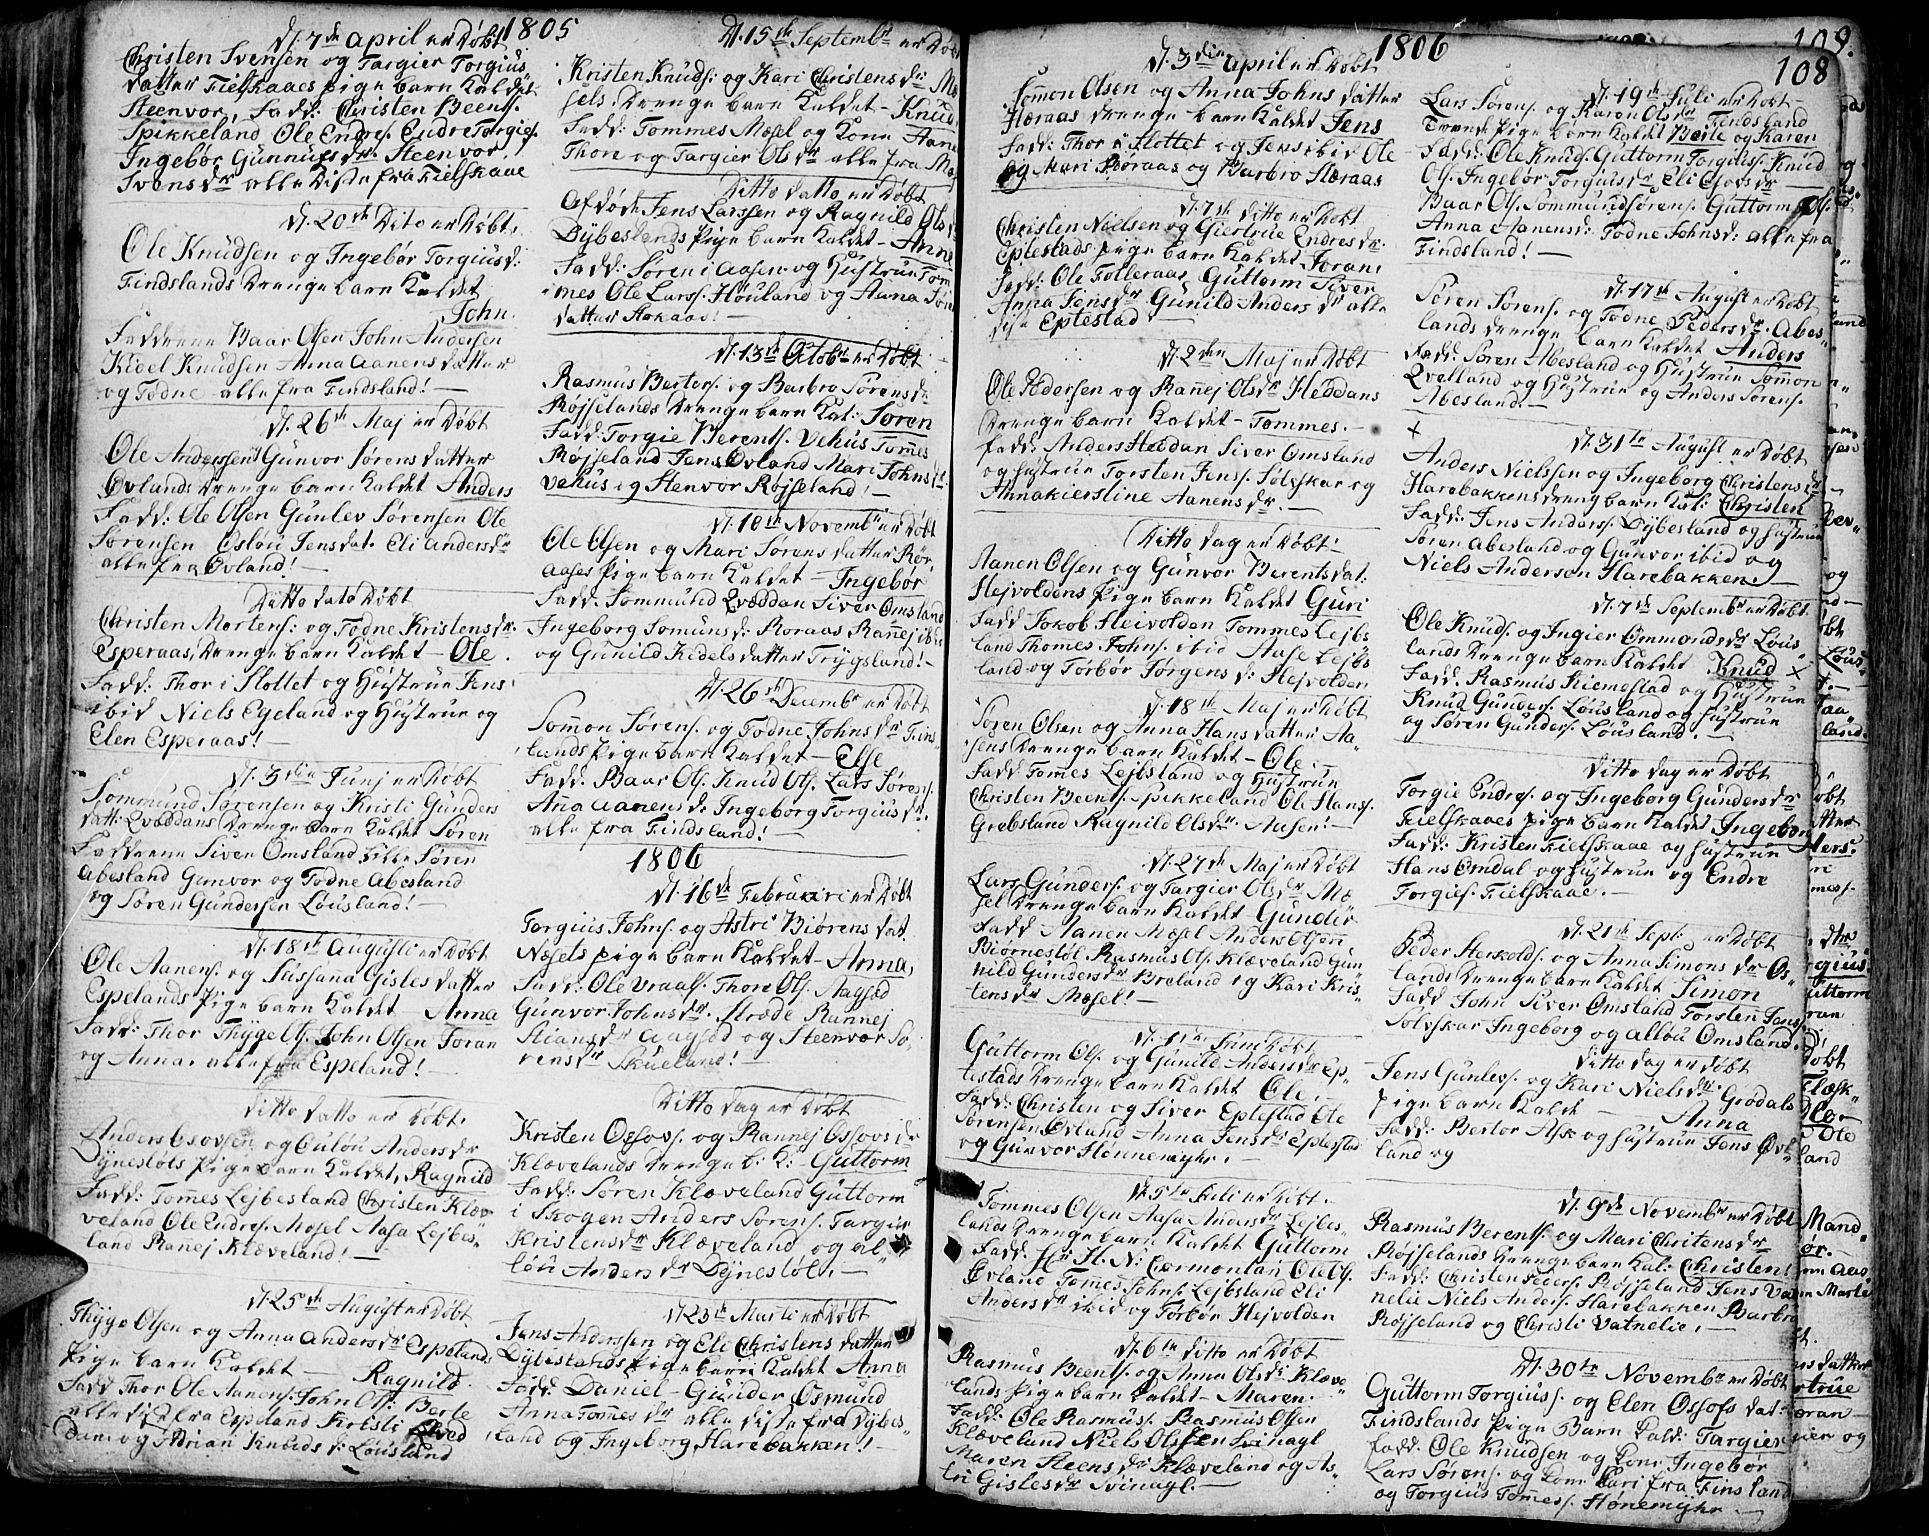 1805
d. 7de april er Døbt
Christen Svensen og Targier Torgius
datter Fielskaaes pige barn Kaldet
Steenvor, Fadd: Christen Beents.
Spikkeland Ole Endres. Endre Torgies.
Ingebør Gunnufsdr. Steenvor
Svensdr alle disse fra Fielskaae
d. 20de Dito er Døbt,
Ole Knudsen og Ingebør Torgiusd:
Findslands drenge barn Kaldet
John.
Faddrene Baar Olsen John Andersen
Kidel Knudsen Anna Aanens datter
og Todne alle fra Findsland!
d. 26de Maj er Døbt
Ole Anderssen Gunvor Sørens datter
Øvlands drenge barn Kaldet Anders
Fadd: Ole Olsen Gunlev Sørensen Ole
Sørensen Osløu Jensdat. Eli Andersdr
alle fra Øvland!
Ditto dato Døbt
Christen Mortens: og Todne Kristensdr:
Esperaas, drenge barn Kaldet Ole.
Fadd: Thor i Slottet og Hustrue Jens
ibid Niels Egeland og Hustrue og
Elen Esperaas!
d. 3die Junj er Døbt
Sommund Sørensen og Kristi Gunders
datt: Qvæddans drenge barn Kaldet Søren
Faddrene Siven Omsland Søren
Abesland Gunvor og Todne Abesland
og Søren Gundersen Løusland!
d. 18de Augusti er Døbt
Ole Aanens. og Sussana Gisles datter
Espelands pige barn Kaldet Anna
Fadd: Thor Thygels. John Olsen Joran
og Anna, alle fra Espeland!
ditto datto er Døbt,
Anders Osovsen og Guløu Andersdr
Dynestøls pige barn Kaldet, Ragnild
Fadd: Tomes Lejbesland Christen Klæv
veland Ole Endres. Mosel Aasa Lejbes
land Rannej Klæveland!
d. 25de August er Døbt
Thyge Olsen og Anna Andersdr Espelands
pige barn Kaldet Ragnild.
Fadd Thor Ole Aanens: John Ols: Berte
alle disse fra Espeland Kristi
og Adrian Knudsd: Løusland
d. 15de Septembr er Døbt
Kristen Knuds: og Kari Christensdr: Mæ
sels drenge barn Kaldet Knud,
Fadd: Tommes Mæsel og Kone Aane
Thore og Targier Olsdr alle fra
Ditto datto er Døbt
Afdøde Jens Larssen og Ragnild Olsd
Dybeslands pige barn Kaldet Anne
Fadd: Søren i Aasen og Hustrue Tom
mes Ole Larss. Høuland og Anna Søre
datter Aakaas!
d. 13de Octobr er Døbt
Rasmus Berters. og Barbro Sørensdr
Røjselands drenge barn Kal: Søren
Fadd: Torgie Berents. Vehus Tommes
Røjseland Jens Øvland Mari Johnsdr
Vehus og Stenvor Røjseland!
d. 18de Novembr er Døbt
Ole Olsen og Mari Sørens datter Rør,
aases pige barn Kaldet Ingebør
Fadd: Sommund Qvæddan Siver Omsland
Ingeborg Somunsd: Roraas Rannej ibid
og Gunild Kidels datter Trygsland!
d. 26de Decembr er Døbt
Sommon Sørens. og Todne Johnsdr Fins
lands pige barn Kaldet Else
Fadd: Baar Ols. Knud Ols. Lars Sørens.
Ana Aanensd: Ingeborg Torgiusdr:
alle fra Findsland!
1806
d. 16de Februari er Døbt
Torgius Johns. og Astri Biørens dat.
Næsets pige barn Kaldet Anna,
Fadd: Ole Vraals. Thore Ols. Aagsød
Gunvor Johnsdr. Stræde Rannej
Stiansdr Aagsød og Steenvor Sø
rensdr Skueland!
Ditto dag er Døbt
Kristen Ossovs. og Rannej Ossovsdr
Klævelands drenge b: K: Guttorm
Fadd: Søren Klæveland Guttorm
i Skogen Anders Sørens. Targier
Kristensdr Klæveland og Gu
løu Andersdr Dynestøl.
d. 23de Marti er Døbt
Jens Anderssen og Ele Christens datter
Dybeslands pige barn Kaldet Anna
Fadd: Daniel Gunder Osmund
Anna Tommesdr alle disse fra Dybes
land og Ingeborg Harebakken!
1806
108
109.
d. 3die april er Døbt
Sommon Olsen og Anna Johns datter
Høraas drenge barn Kaldet Jens
Fadd: Thor i Slottet og Jens ibid Ole
og Mari Roraas og Barbro Høraas
d. 7de ditto er Døbt
Christen Nielsen og Giertrue Endresdr:
Eptestads pige barn Kaldet Joran,
Fadd: Ole Folleraas Guttorm Siver
Anna Jensdr Gunild Andersdr alle
disse Eptestad
d. 2den Maj er Døbt
Ole Pedersen og Rannej Olsdr Heddans
drenge barn Kaldet Tommes.
Fadd: Anders Heddan Siver Omsland
og Hustrue Torsten Jens. Sølvskar og
Annakierstine Aanensdr.
Ditto dag er Døbt
Aanen Olsen og Gunvor Berentsdat:
Hejvoldens pige barn Kaldet Guri
Fadd Jokob Heivolden Tommes Lejbs
land Thomes Johns. ibid Aase Lejbs
land og Torbør Jørgensd: Hejvolden
d. 18de Maj er Døbt
Søren Olsen og Anna Hans datter Aa
sens drenge barn Kaldet Ole
Fadd Tomes Lejbsland og Hustrue
Christen Beents. Spikkeland Ole Hans.
Grebsland Ragnild Olsdr Aasen!
d. 27de Maj er Døbt
Lars Gunders. og Targier Olsdr Mæ
sel drenge barn Kaldet Gunder
Fadd Aanen Mæsel Anders Olsen
Biørnestøl Rasmus Ols. Klæveland Gun
nild Gundersdr Breland og Kari Kris
tensdr Mæsel!
d. 1te Juni Døbt
Guttorm Ols. og Gunild Andersdr Ep
testads drenge barn Kaldet Ole,
Fadd: Christen og Siver Eptestad Ole
Sørensen Øvland Anna Jensdr Eptestad
og Gunvor Hønnemyhr.
d. 5te Juli er Døbt.
Tommes Olsen Aasa Andersdr Lejbes
lands drenge barn Kaldet Guttorm
Fadd: Hr H. N: Cærmontan Ole Ols.
Øvland Tomes Johns. Lejbsland Eli
Andersdr ibid og Torbør Hejvolden
d. 6te ditto er Døbt
Rasmus Beents. og Anna Olsdr Klæve
lands pige barn Kaldet Maren.
Fadd: Ole Rasmus. Rasmus Olsen
Klæveland Niels Olssen Svinagl
Maren Steensdr Klæveland og As
tri Gislesdr Svinagl.
d. 19de Juli er Døbt
Lars Sørens. og Karen Olsdr Findsland
Tvende pige barn Kaldet Berte og Karen
Fadd: Ole Knuds. Guttorm Torgius. Knud
Ols. Ingebør Torgiusdr Eli Osovsdr
Baar Ols. Sommund Sørens. Guttorm Ols.
Anna Aanensd: Todne Johnsd: alle fra
Findsland!
d. 17de August er Døbt
Søren Sørens. og Todne Pedersdr. Abes
lands drenge barn Kaldet Anders
Fadd: Søren Abesland og Hustrue Sommon
Qvelland og Hustrue og Anders Sørens.
Abesland.
d. 31te August er Døbt
Anders Nielssen og Ingeborg Christensdr
Harebakkens dreng barn Kal: Christen
Fadd: Jens Anders. Dybesland og Hustrue
Søren Abesland og Gunvor ibid og
Niels Andersen Harebakken.
d. 7de Septembr er Døbt
Ole Knuds. og Ingier Ommondsdr Løus
lands drenge barn Kaldet Knud
Fadd. Rasmus Kiemestad og Hustrue
Knud Gunders. Løusland og Hustrue
og Søren Gunders. Løusland.
ditto dag er Døbt
Torgie Endres. og Ingeborg Gundersdr
Fielskaaes pige barn Kaldet Ingeborg
Fadd: Kristen Fielskaae og Hustrue
Hans Omdal og Hustrue og Endre
Torgies. Fielskaae.
d. 21de Sept. er Døbt
Peder Herskolds. og Anna Simonsdr Os
lands drenge barn Kaldet Simon
Fadd John Siver Omsland Torsten Jens.
Sølvskar Ingeborg og Alløu Omsland.
ditto dag er Døbt
Jens Gunles. og Kari Nielsdr Grødals
pige barn Kaldet Anna
Fadd: Bertor Ask og Hustrue Jens Øv
land og
d. 9de Novembr er Døbt
Rasmus Berents. og Mari Chritensdr
Røjselands drenge barn Kal: Christen!
Fadd: Christen Peders. Røjseland Jens Vat
nelie Niels Anders. Harebakken Barbro
Røjseland og Christi Vatnelie.
d. 30te Novembr er Døbt
Guttorm Torgius. og Elen Ossofs dat:
Findslands pige Barn Kald: Targier
Fadd: Ole Knudsen og Kone Ingebor
Lars Sørens. og Kone Kari fra Finsland
og Torgius Tommes. Hønemyhr.